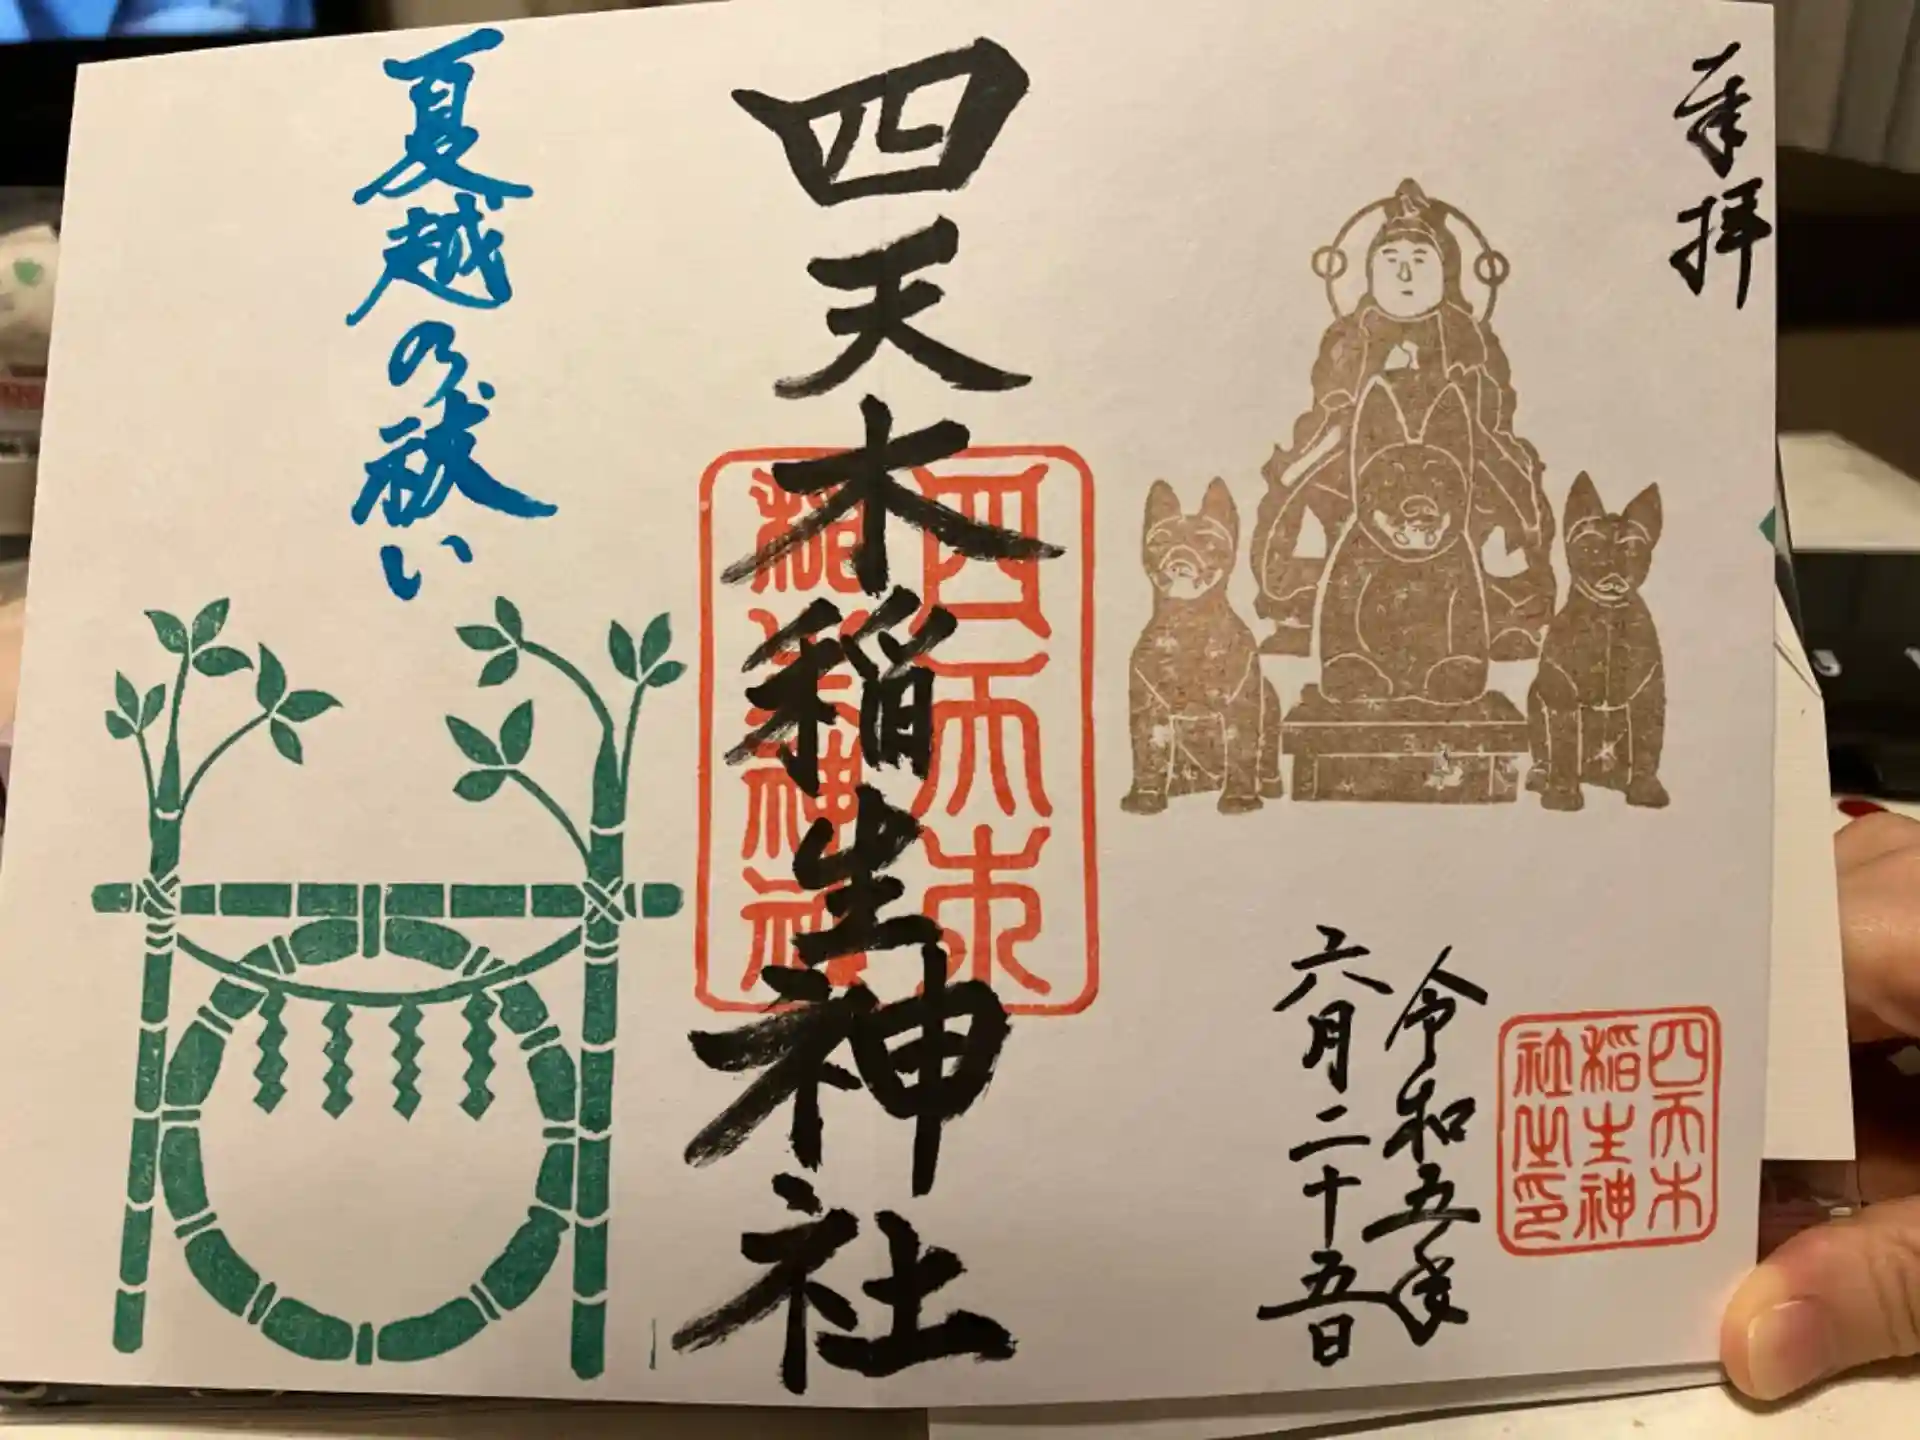 奉拝
四天木
稲生神
社之印
令和五年
六月二十五日
四天木稲生神社
四天木
稲生神社
夏越の祓い